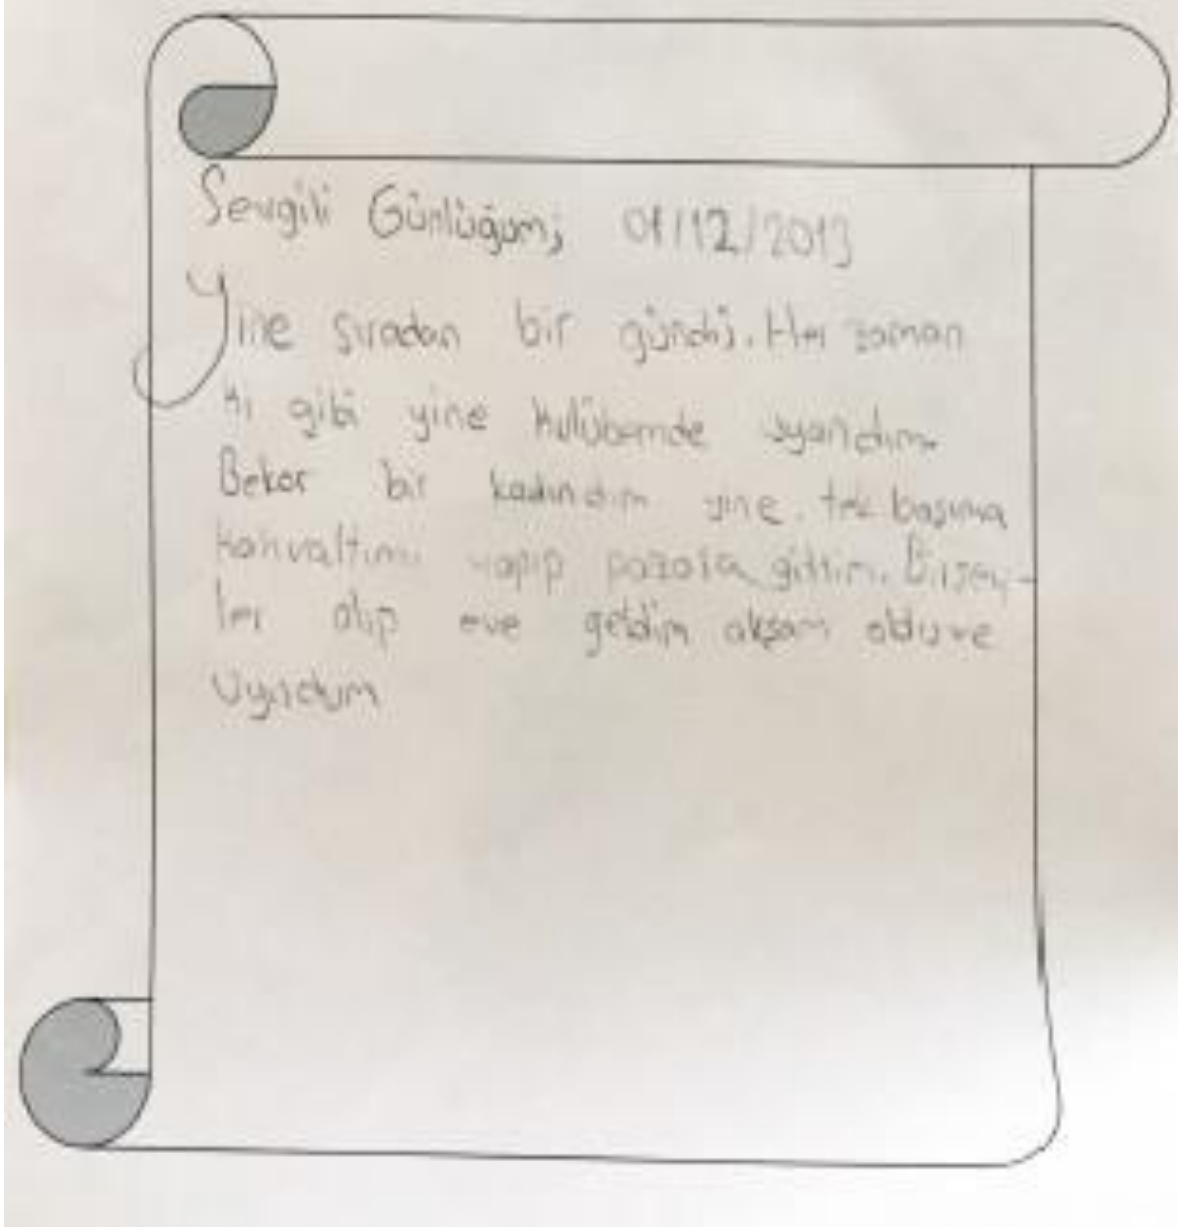 Sevgili Günlüğüm; 01/12/2013
Yine sıradan bir gündü. Her zaman
ki gibi yine kulübemde uyandım.
Bekar bir kadındım yine. tek başıma
kahvaltımı yapıp pazara gittim. Birşey-
ler alıp eve geldim akşam oldu ve
uyudum